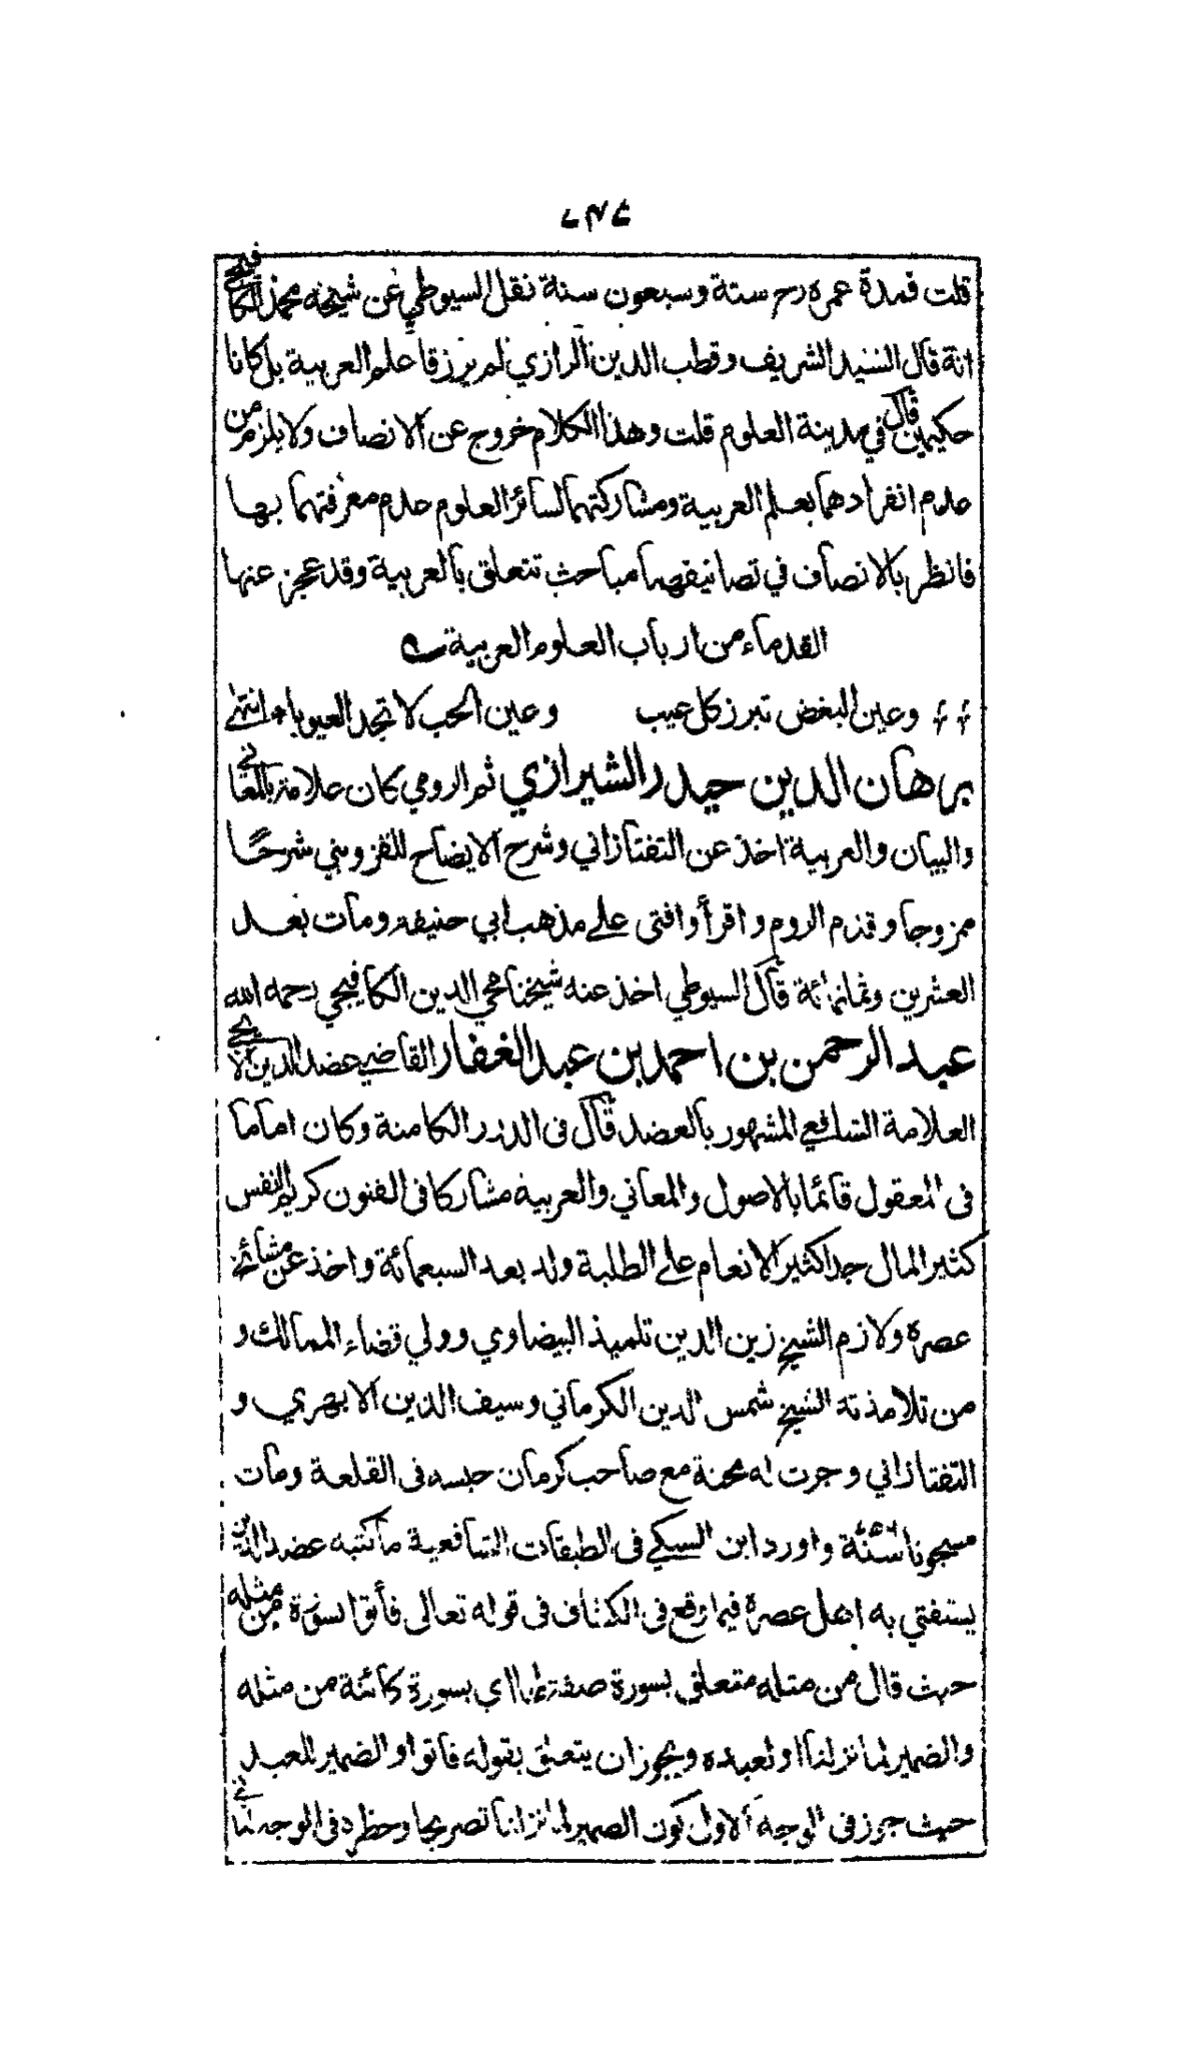 قلت فمدة عمره رح ستة وسبعون سنة نقل السيوطي عن شيخه محمد الكافيجي
انه قال السيد الشريف وقطب الدين الرازي لم يرزقا علم العربية بل كانا
حكيمين قال في مدينة العلوم قلت وهذا الكلام خروج عن الانصاف ولا يلزم من
عدم انفرادهما بعلم العربية ومشاركتهما لسائر العلوم عدم معرفتهما بها
فانظر بالانصاف في تصانيفهما مباحث تتعلق بالعربية وقد عجز عنها
القدماء من ارباب العلوم العربية
وعين البغض تبرز كل عيب وعين الحب لا تجد العيوبا انتهى
برهان الدين حيدر الشيرازي ثم الرومي كان علامة بالمعاني
والبيان والعربية اخذ عن التفتازاني وشرح الايضاح للقزويني شرحًا
ممزوجا وقدم الروم واقرأ وافتى على مذهب ابي حنيفه ومات بعد
العشرين وثمانمائة قال السيوطي اخذ عنه شيخنا محي الدين الكافيجي رحمه الله
عبد الرحمن بن احمد بن عبد الغفار القاضي عضد الدين الايجي
العلامة الشافعي المشهور بالعضد قال في الدرر الكامنة وكان اماما
في المعقول قائما بالاصول والمعاني والعربية مشاركا في الفنون كريم النفس
كثير المال جدا كثير الانعام على الطلبة ولد بعد السبعمائة واخذ عن مشائخ
عصره ولازم الشيخ زين الدين تلميذ البيضاوي وولي قضاء الممالك و
من تلامذته الشيخ شمس الدين الكرماني وسيف الدين الابهري و
التفتازاني وجرت له محنة مع صاحب كرمان حبسه في القلعة ومات
مسجونا واورد ابن السبكي في الطبقات الشافعية ما كتبه عضد الدين
يستفتي به اهل عصره فيما وقع في الكشاف في قوله تعالى فأتوا بسورة من مثله
حيث قال من مثله متعلق بسورة صفة لها اي بسورة كائنة من مثله
والضمير لما نزلنا او لعبده ويجوز ان يتعلق بقوله فاتوا والضمير للعبد
حيث جوز في الوجه الاول كون الضمير لما نزلنا تصريحا وحظره في الوجه الثاني